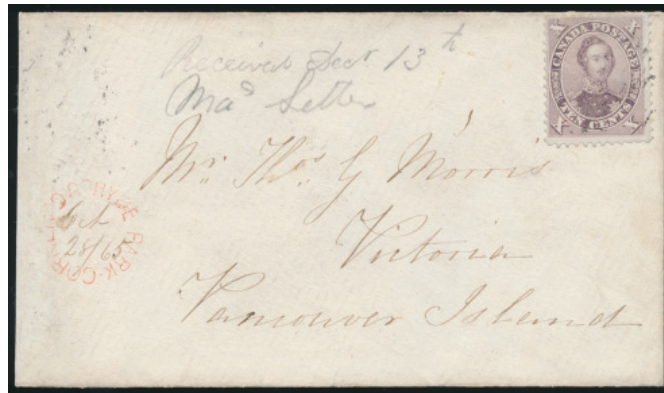 CANADA POSTAGE
TEN CENTS
Received Dect 13th
Ma's Letter
Mr. Thos. G Morris
Victoria
Vancouver Island
HYDE PARK CORNER
Oct
28/65